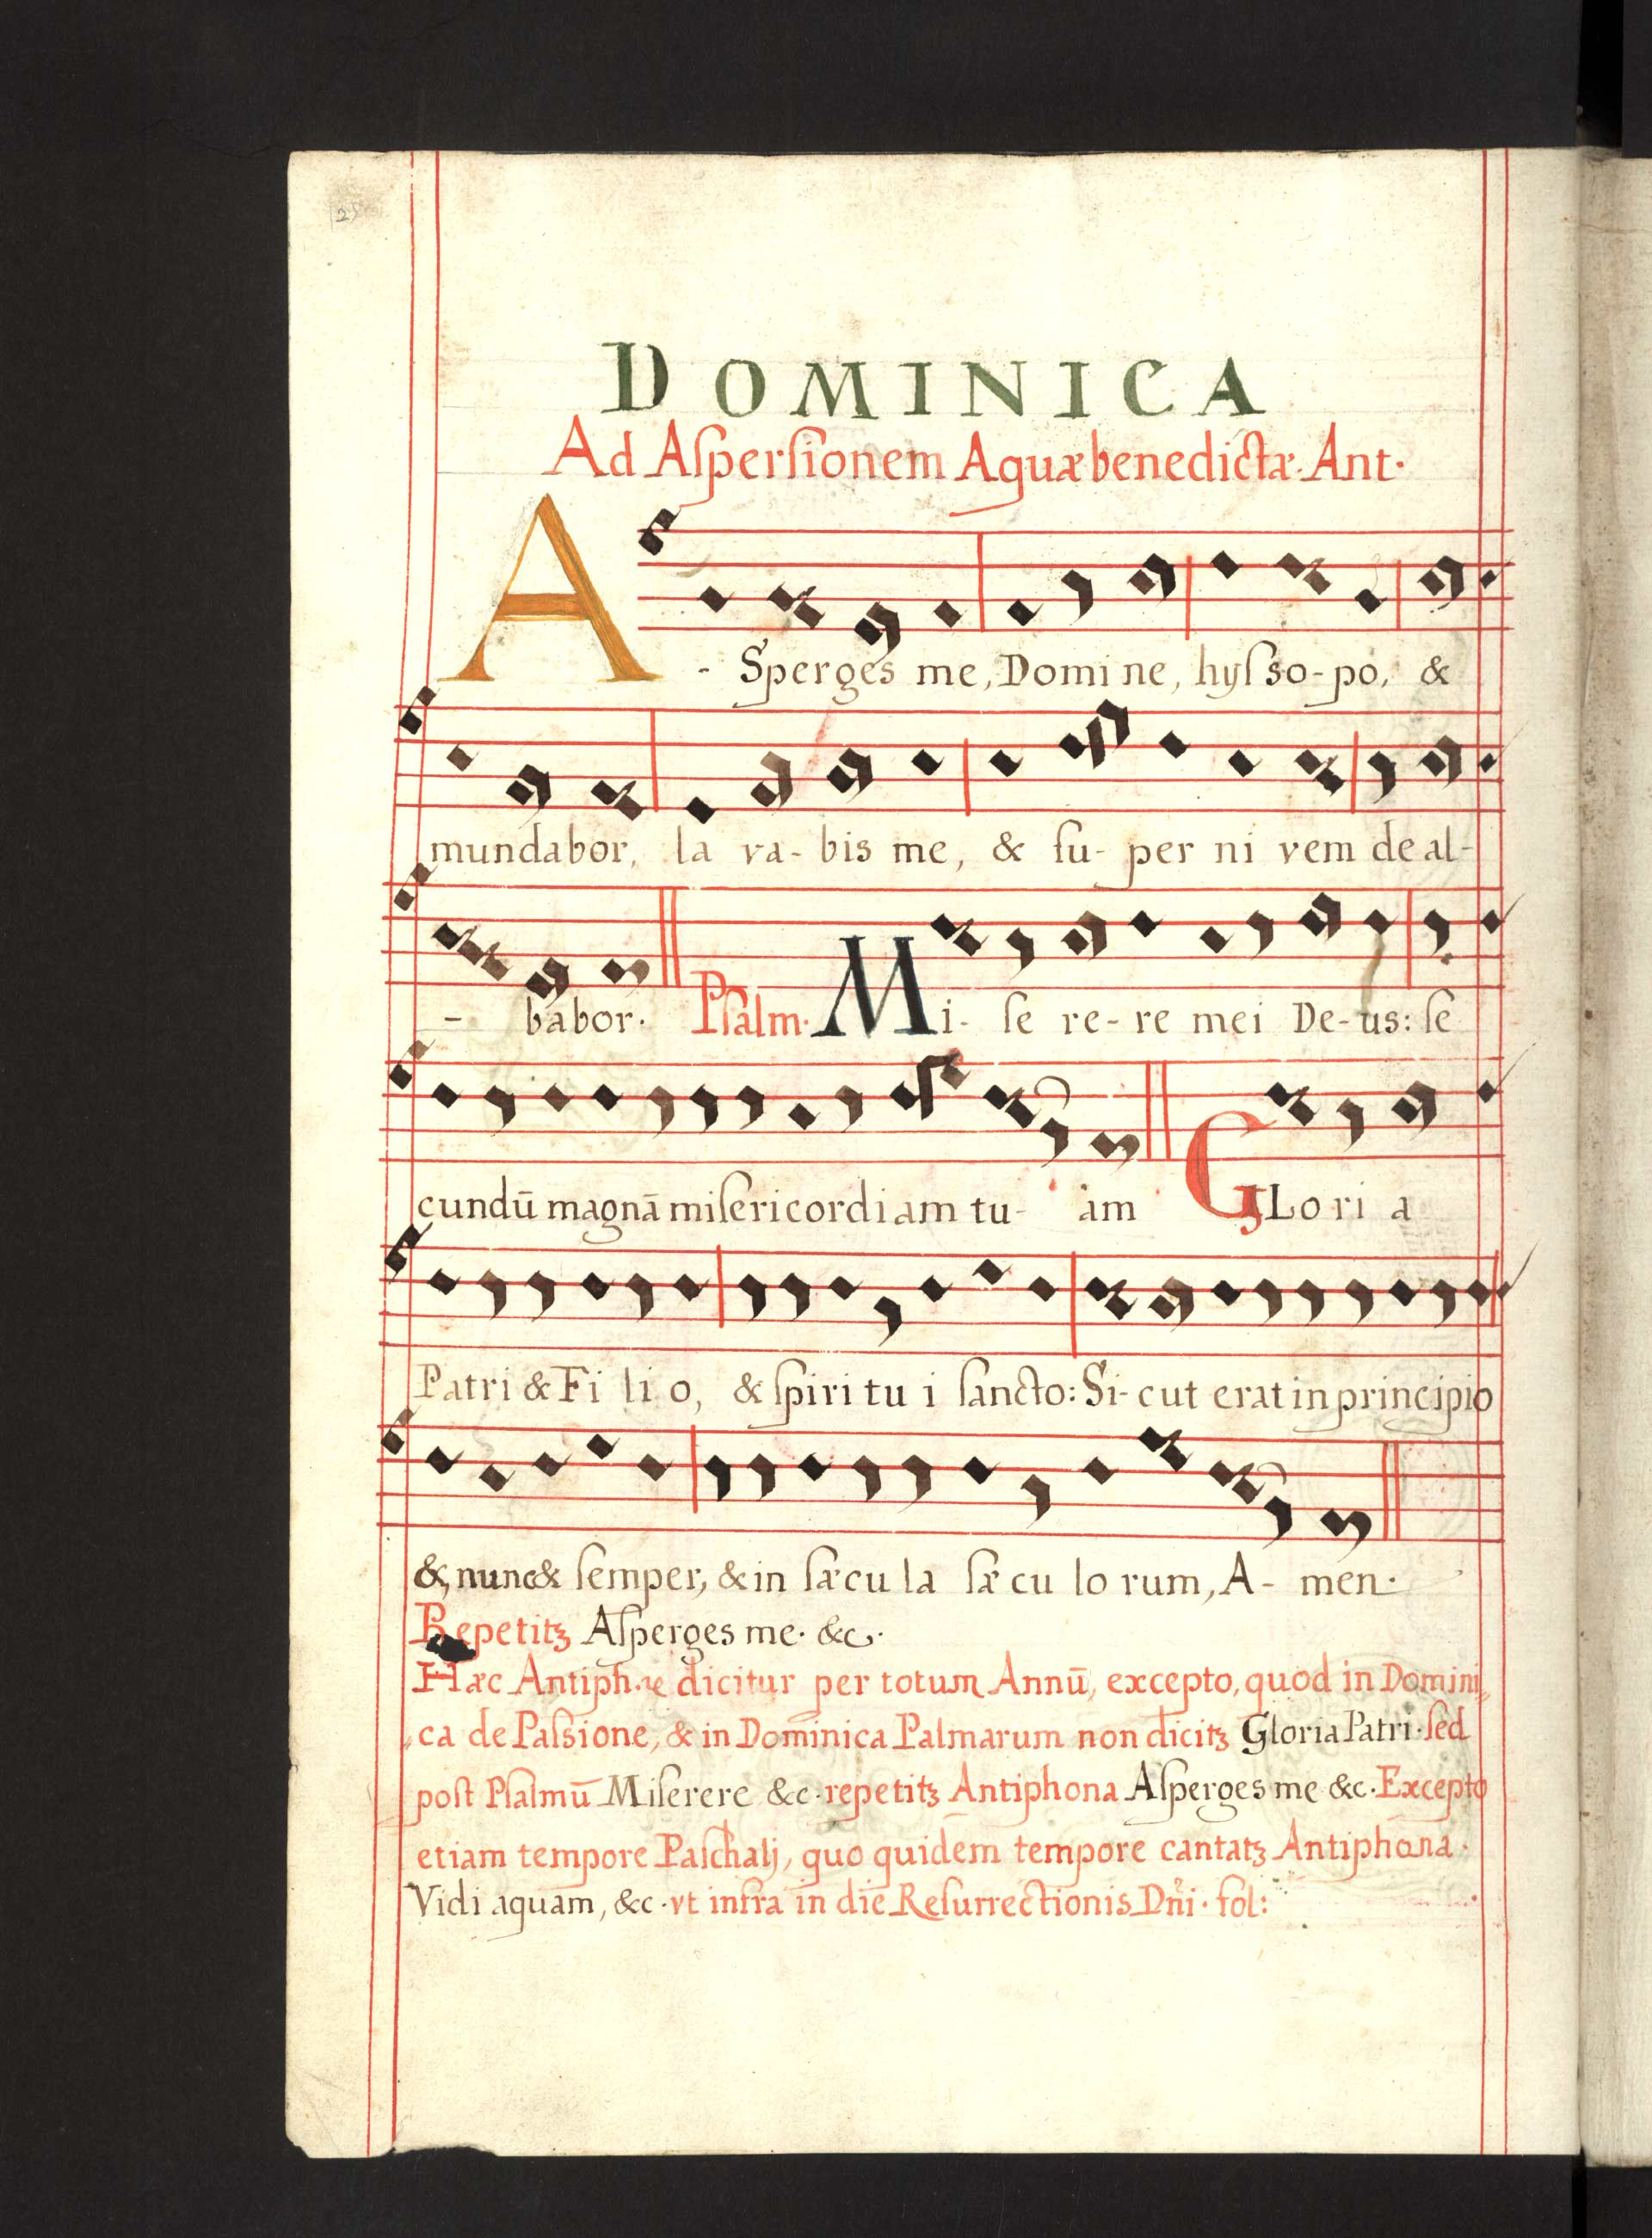 DOMINICA
Ad Aſperſionem Aquæ benedictæ. Ant.
A- Sperges me, Domine, hyſso-po, &
mundabor, la va-bis me, & ſu-per ni vem de al-
- babor. Pſalm. Mi- ſe re-re mei De-us: ſe
cundū magnā miſericordiam tu- am GLo ri a
Patri & Fi li o, & ſpiri tu i ſancto: Si-cut erat in principio
&, nunc & ſemper, & in ſæcu la ſæ cu lo rum, A- men.
Repetitꝫ Aſperges me. &c.
Hæc Antiph. dicitur per totum Annū, excepto, quod in Domini„
„ca de Paſsione, & in Dominica Palmarum non dicitꝫ Gloria Patri. ſed
poſt Pſalmū Miſerere &c. repetitꝫ Antiphona Aſperges me &c. Excepto
etiam tempore Paſchalj, quo quidem tempore cantatꝫ Antiphona.
Vidi aquam, &c. vt infra in die Reſurrectionis Dn̄i. fol: